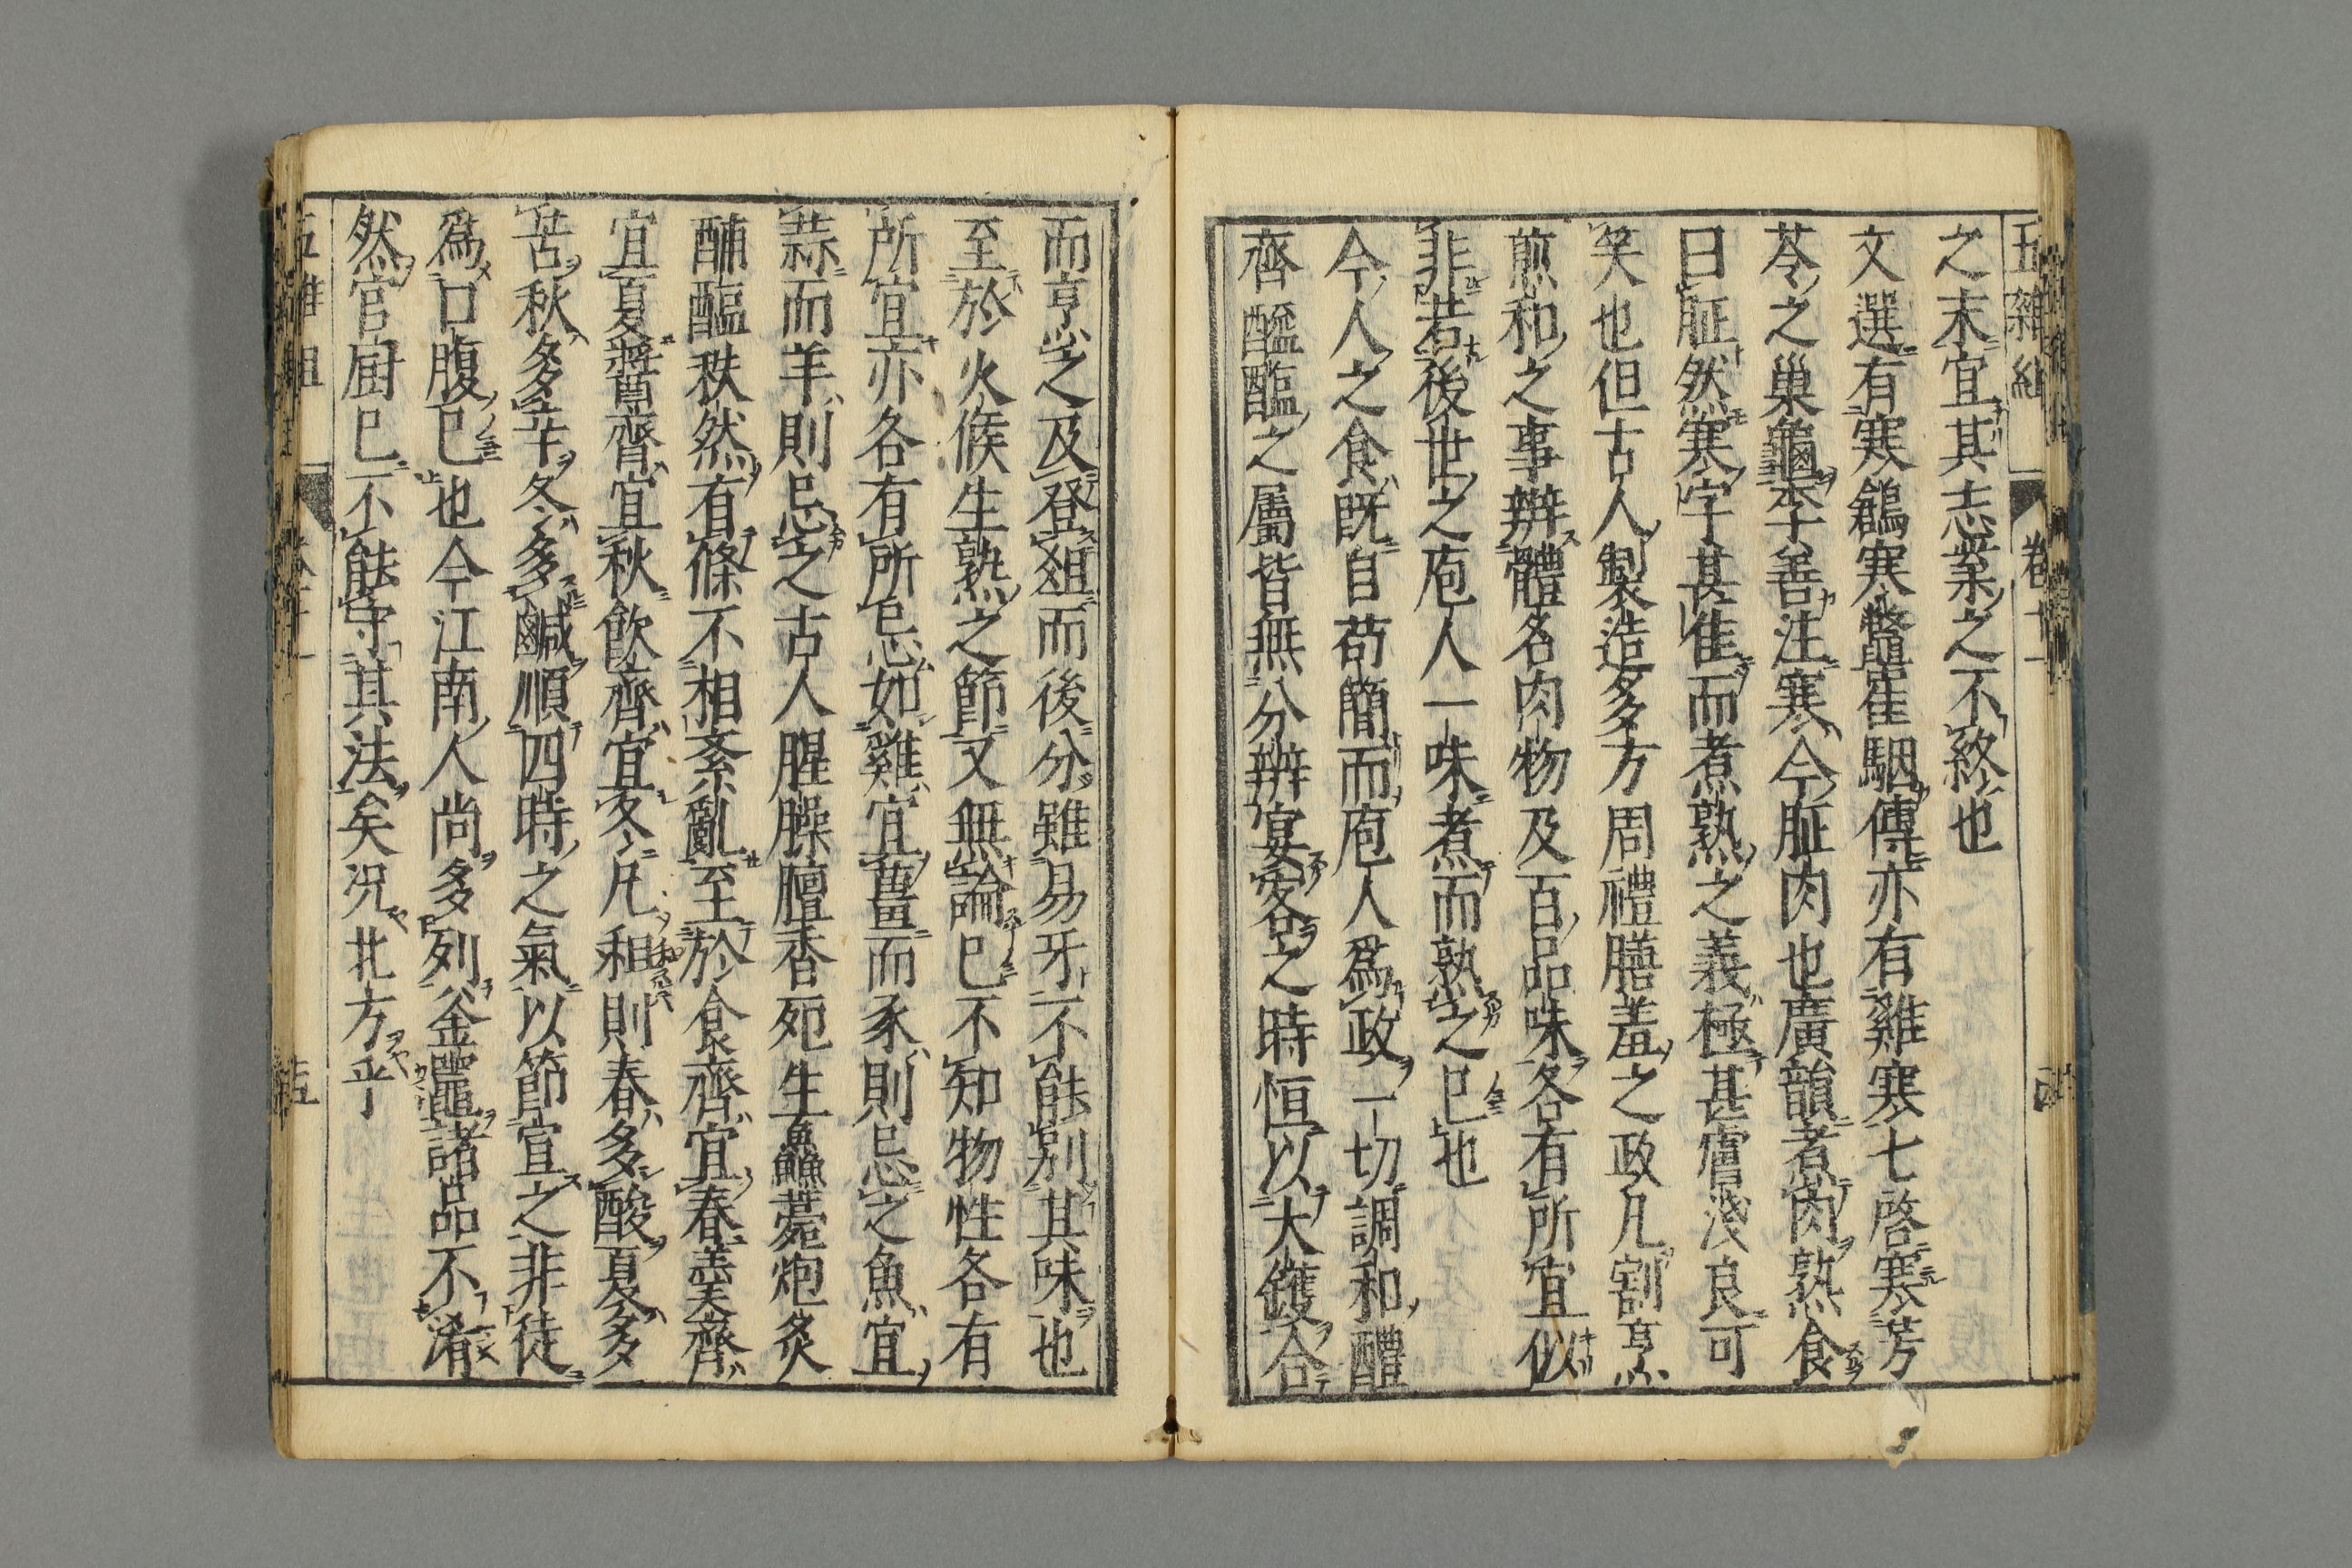 五雜組 卷十一
之末宜其志業之不終也
文選有寒鶬寒鼈崔駰傳亦有雞寒七啓寒芳
苓之巢龜李善注寒今胵肉也廣韻煮肉熟食
曰胵然寒字甚佳而煮熟之義極甚膚淺良可
笑也但古人製造多方周禮膳羞之政凡割亨
煎和之事辨體名肉物及百品味各有所宜似
非若後世之庖人一味煮而熟之已也
今人之食既自苟簡而庖人爲政一切調和醴
齊醯醢之屬皆無分辨宴客之時恒以大鑊合
而烹之及登俎而後分雖易牙不能别其味也
至於火候生熟之節又無論已不知物性各有
所宜亦各有所忌如雞宜薑而豕則忌之魚宜
蒜而羊則忌之古人腥臊膻香死生鱻薧炮炙
酺醢秩然有條不相紊亂至於食齊宜春羹齊
宜夏醬齊宜秋飲齊宜冬凡和則春多酸夏多
苦秋多辛冬多鹹順四時之氣以節宜之非徒
爲口腹已也今江南人尚多列釜鼉諸品不淆
然官厨已不能守其法矣况北方乎